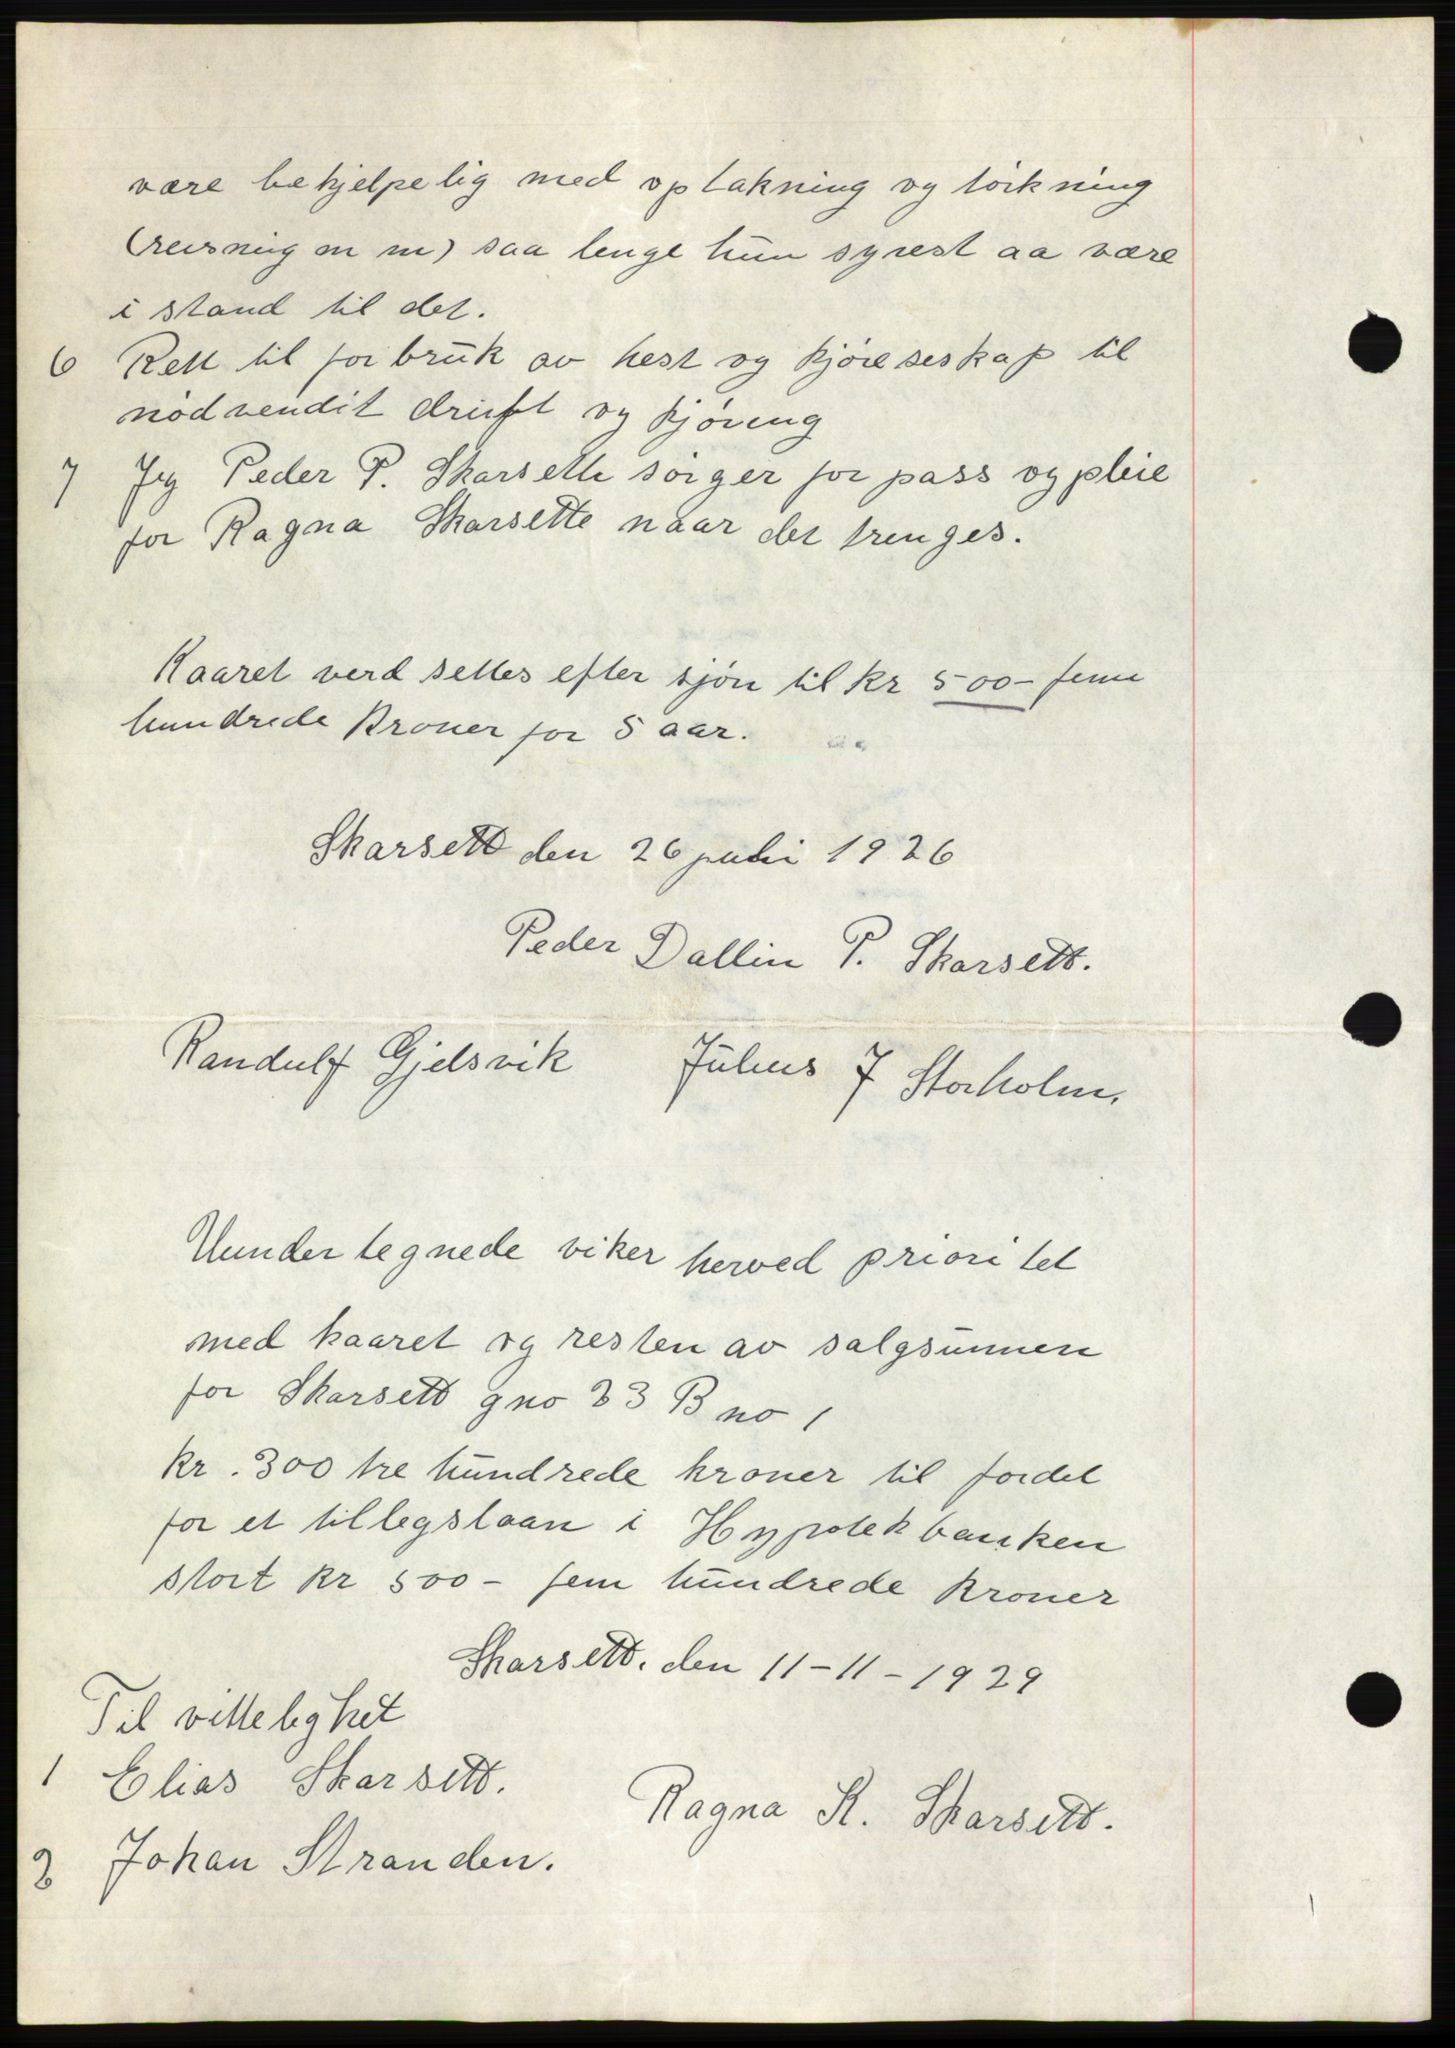 være behjelpelig med optakning og törkning
(reisning m m) saa lenge hun synest aa være
i stand til det.
6 Rett til forbruk av hest og kjöreseskap til
nödvendit drift og kjöring
7 Jeg Peder P. Skarsette sörger for pass og pleie
for Ragna Skarsette naar det trenges.
Kaaret verdsettes efter sjön til kr 500- fem
hundrede kroner for 5 aar.
Skarsett den 26 juli 1926
Peder Dallin P. Skarsett.
Randulf Gjelsvik Julius J Storholm.
Uundertegnede viker herved prioritet
med kaaret og resten av salgsummen
for Skarsett gno 23 B no 1
kr. 300 tre hundrede kroner til fordel
for et tillegslaan i Hypotekbanken
stort kr 500- fem hundrede kroner
Skarsett. den 11-11-1929
Til vitteleghet
1 Elias Skarsett.
Ragna K. Skarsett.
2 Johan Stranden.